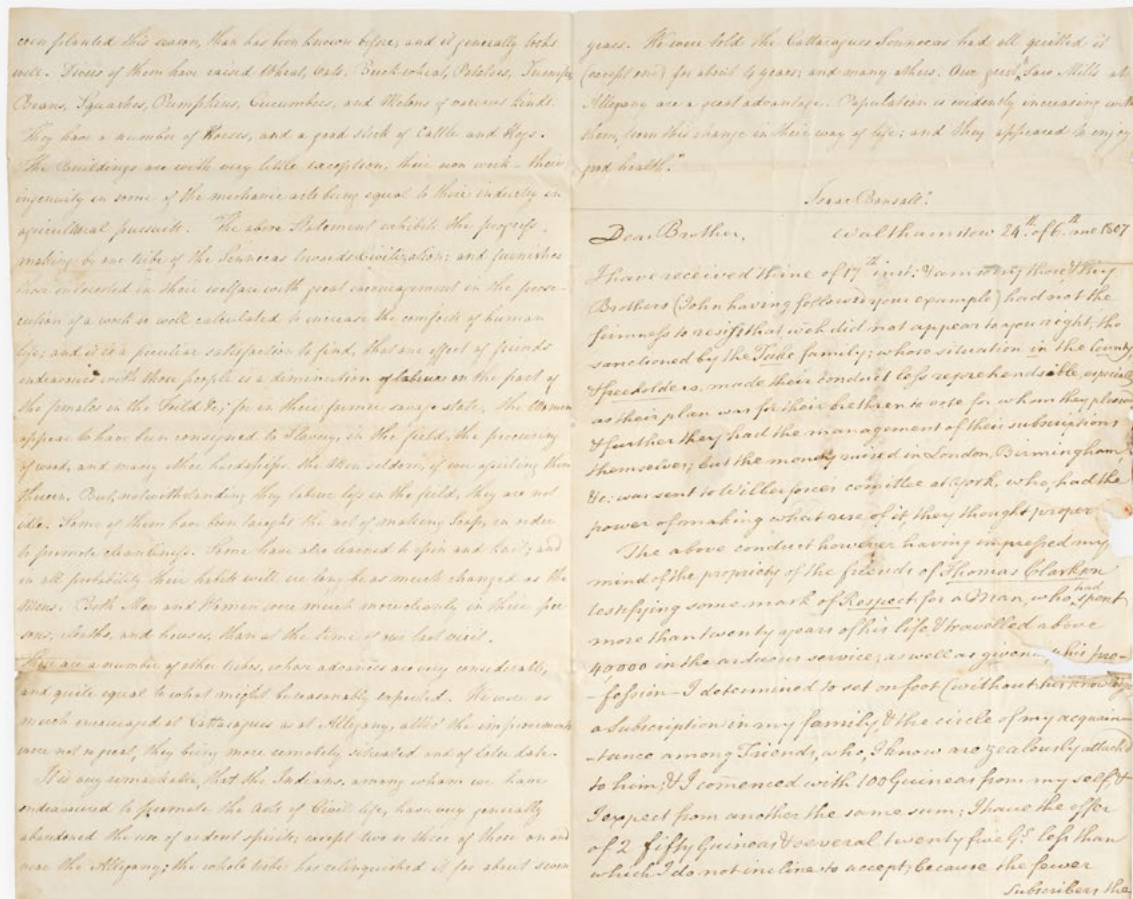 corn planted this season, than has been known before, and it generally looks
well. Divers of them have raised Wheat, Oats, Buck-wheat, Potatoes, Turnips,
Beans, Squashes, Pumpkins, Cucumbers, and Melons of various kinds.
They have a number of Horses, and a good stock of Cattle and Hogs.
The Buildings are with very little exception, their own work – their
ingenuity in some of the mechanic arts being equal to their industry in
agricultural pursuits. The above Statement exhibits the progress
making by one tribe of the Sennecas towards Civilization; and furnishes
those interested in their welfare with great encouragement in the prose-
cution of a work so well calculated to increase the comforts of human
life; and it is a peculiar satisfaction to find, that one effect of friends
endeavours with those people is a diminution of labour on the part of
the females in the Feild &c; for in their former savage state, the Women
appear to have been consigned to Slavery, in the field, the procuring
of wood, and many other hardships. the Men seldom, if ever assisting them
therein. But, notwithstanding they labour less in the field, they are not
idle. Some of them have been taught the art of making Soap, in order
to promote cleanliness. Some have also learned to spin and knit; and
in all probability their habits will ere long be as much changed as the
Mens. Both Men and Women were much more cleanly in their per
sons, cloths, and houses, than at the time of our last visit.
There are a number of other tribes, whose advances are very considerable,
and quite equal to what might be reasonably expected. We were as
much encouraged at Cattaragues as at Allegany, altho' the improvements
were not so great, they being more remotely situated and of later date.
It is very remarkable, that the Indians, among whom we have
endeavoured to promote the Arts of Civil life, have very generally
abandoned the use of ardent spirits; except two or three of those on and
near the Allegany; the whole tribe has relinquished it for about seven
years. We were told the Cattaragues Sennecas had all quitted it
(except one) for about 4 years; and many others. Our grist & Saw Mills at
Allegany are a great advantage. Population is evidently increasing with
them, from this change in their way of life; and they appeared to enjoy
good health."
Isaac Bonsall."
Dear Brother, Walthamstow 24th. of 6th. mo 1807
I have received thine of 17th inst: & am sorry thou & thy
Brothers (John having followed your example) had not the
firmness to resist that wch did not appear to you right, tho
sanctioned by the Tuke family; whose situation in the County
& freeholders, made their conduct less reprehensible, especially
as their plan was for their brethren to vote for whom they pleased
& further they had the management of their subscriptions
themselves; but the money raised in London, Birmingham
&c: was sent to Wilberforces comittee at York, who, had the
power of making what use of it, they thought proper
The above conduct however having impressed my
mind of the propriety of the friends of Thomas Clarkson
testifying some mark of Respect for a Man, who had spent
more than twenty years of his life, & travelled above
40,000 in the arduous service; as well as given his pro-
-fession – I determined to set on foot (without his knowledge
a Subscription in my family, & the circle of my acquain
-tance among Friends, who, I know are zealously attached
to him; & I comenced with 100 Guineas from my self, &
I expect from another the same sum; I have the offer
of 2 fifty Guineas & several twenty five Gs. less than
which I do not incline to accept; because the fewer
Subscribers the